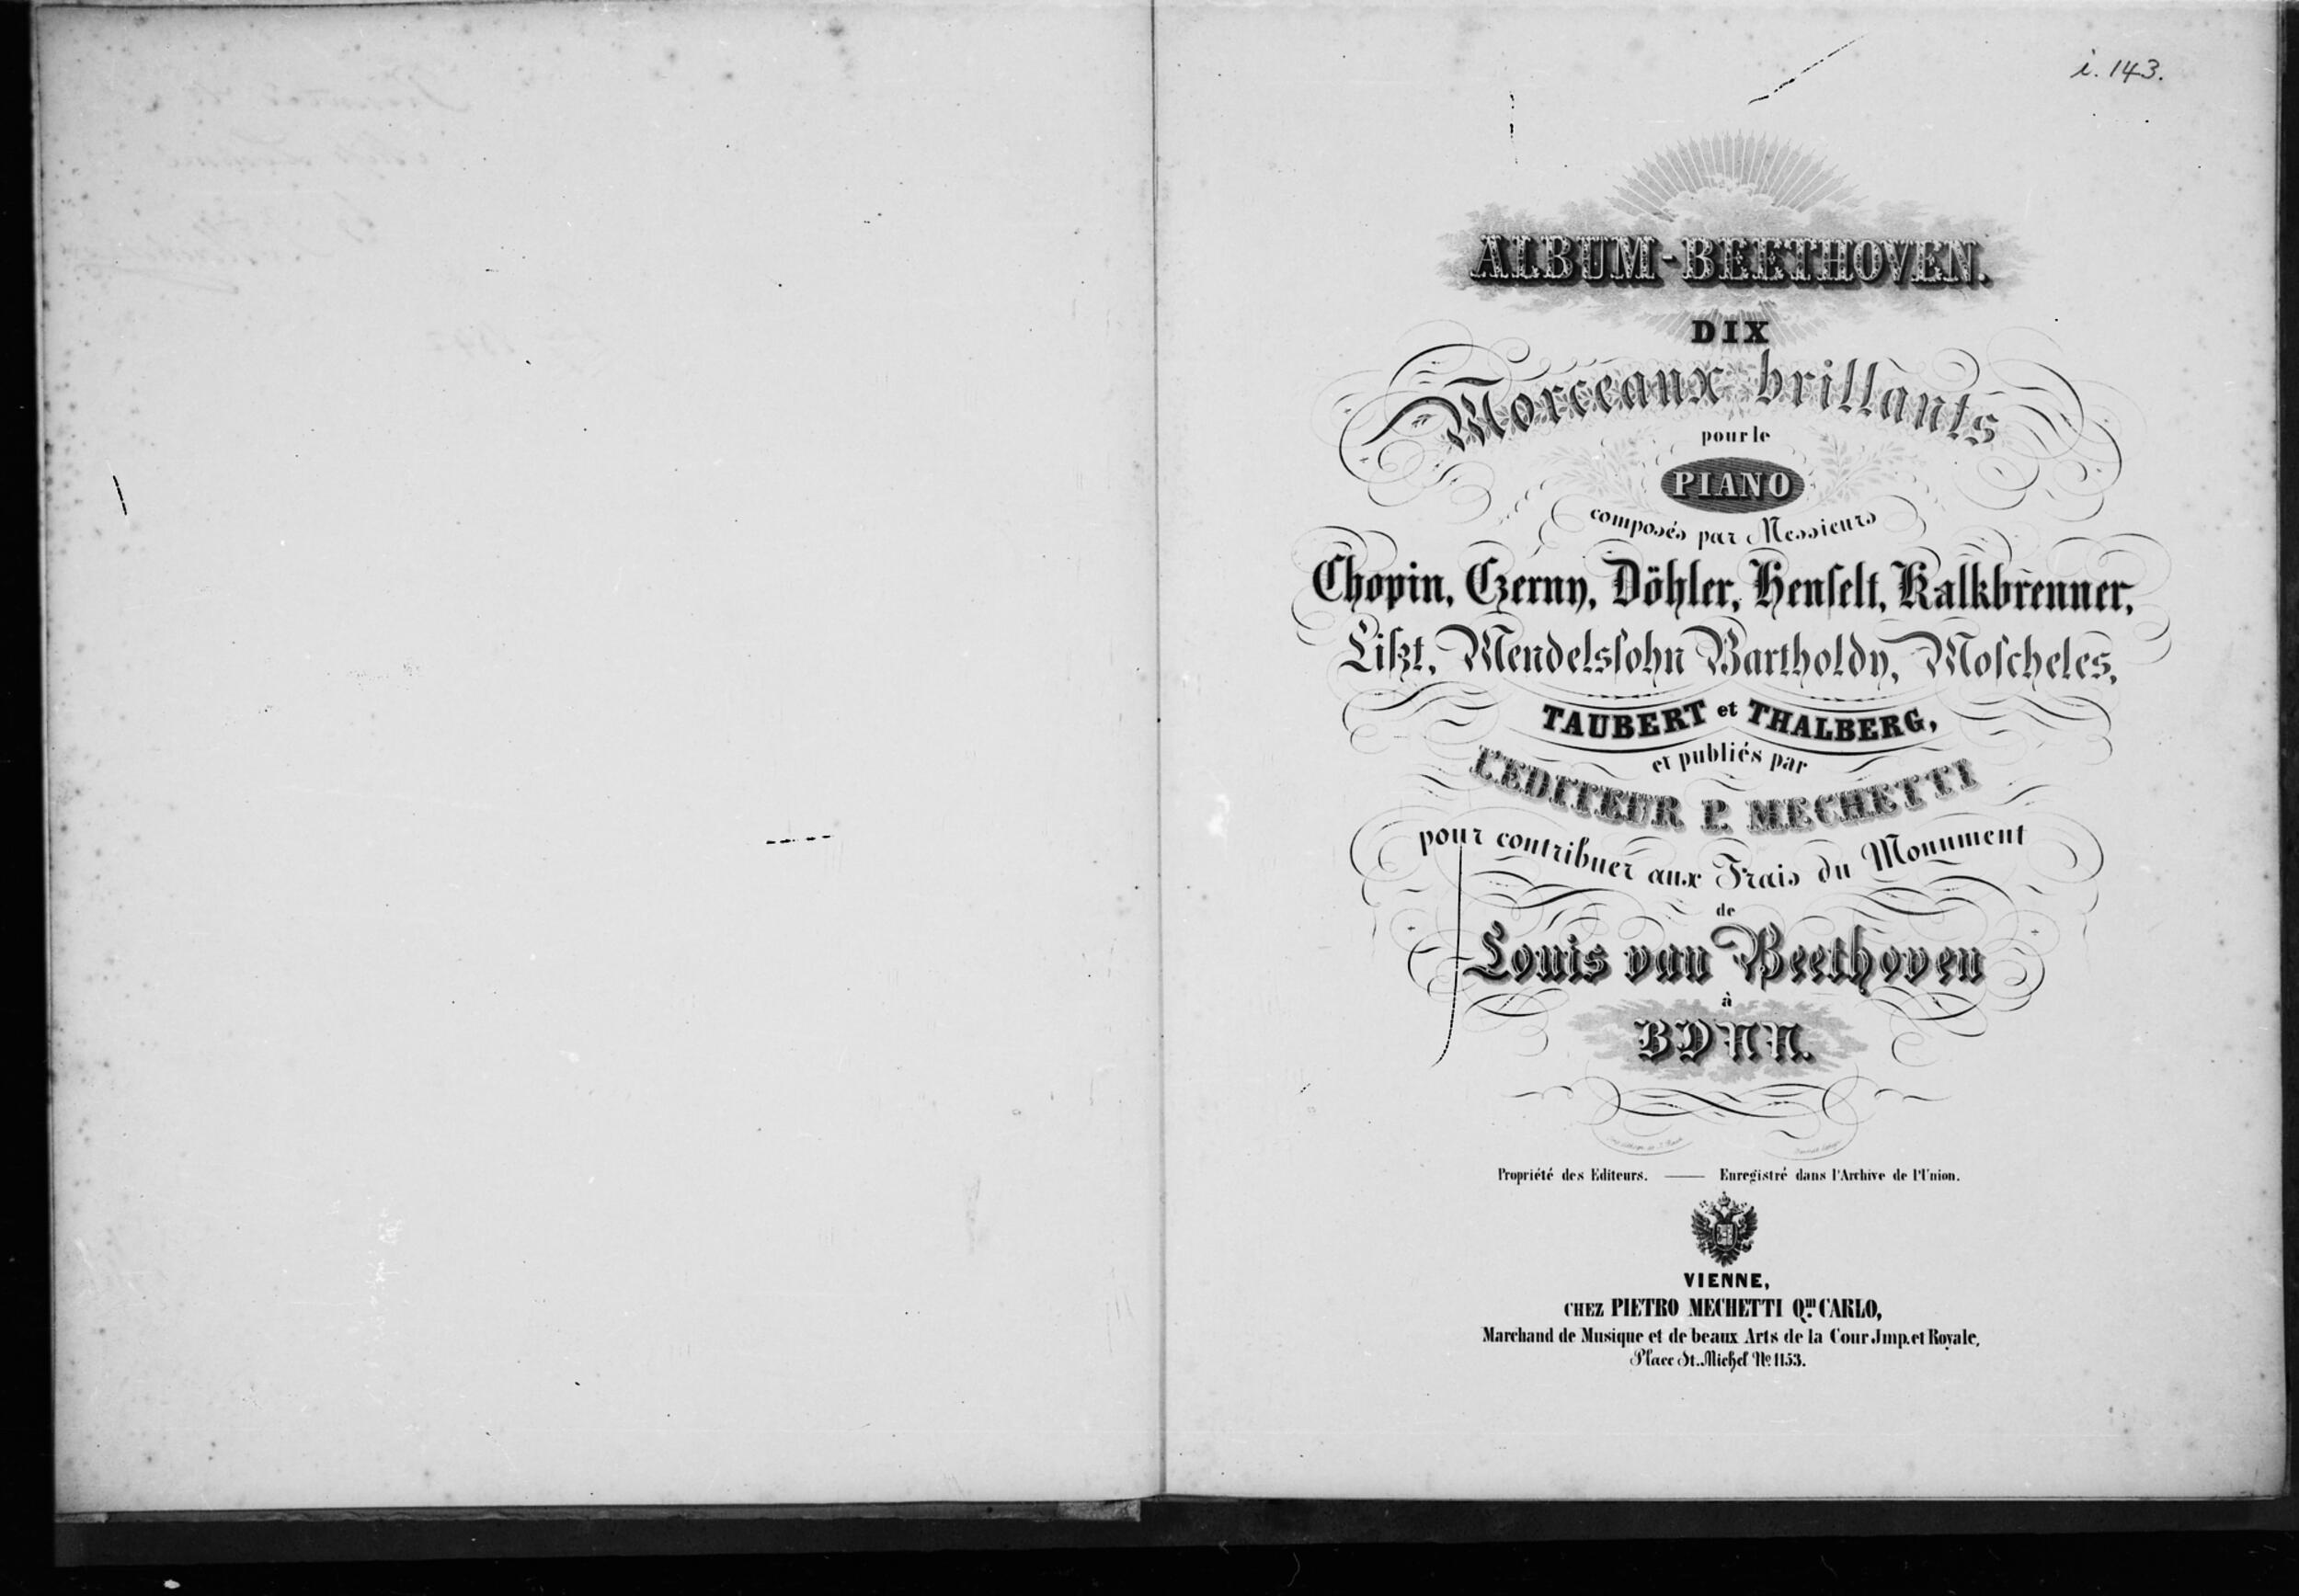 i. 143.
ALBUM-BEETHOVEN.
DIX
Morceaux brillants
pour le
PIANO
composés par Messieurs
Chopin, Czerny, Döhler, Henselt, Kalkbrenner,
Liszt, Mendelssohn Bartholdy, Moscheles,
TAUBERT et THALBERG,
et publiés par
L'EDITEUR P. MECHETTI
pour contribuer aux Frais du Monument
de
Louis van Beethoven
à
BONN.
Propriété des Editeurs. —— Enregistré dans l'Archive de l'Union.
VIENNE,
CHEZ PIETRO MECHETTI Qm CARLO,
Marchand de Musique et de beaux Arts de la Cour Imp. et Royale,
Place St. Michel No. 1153.